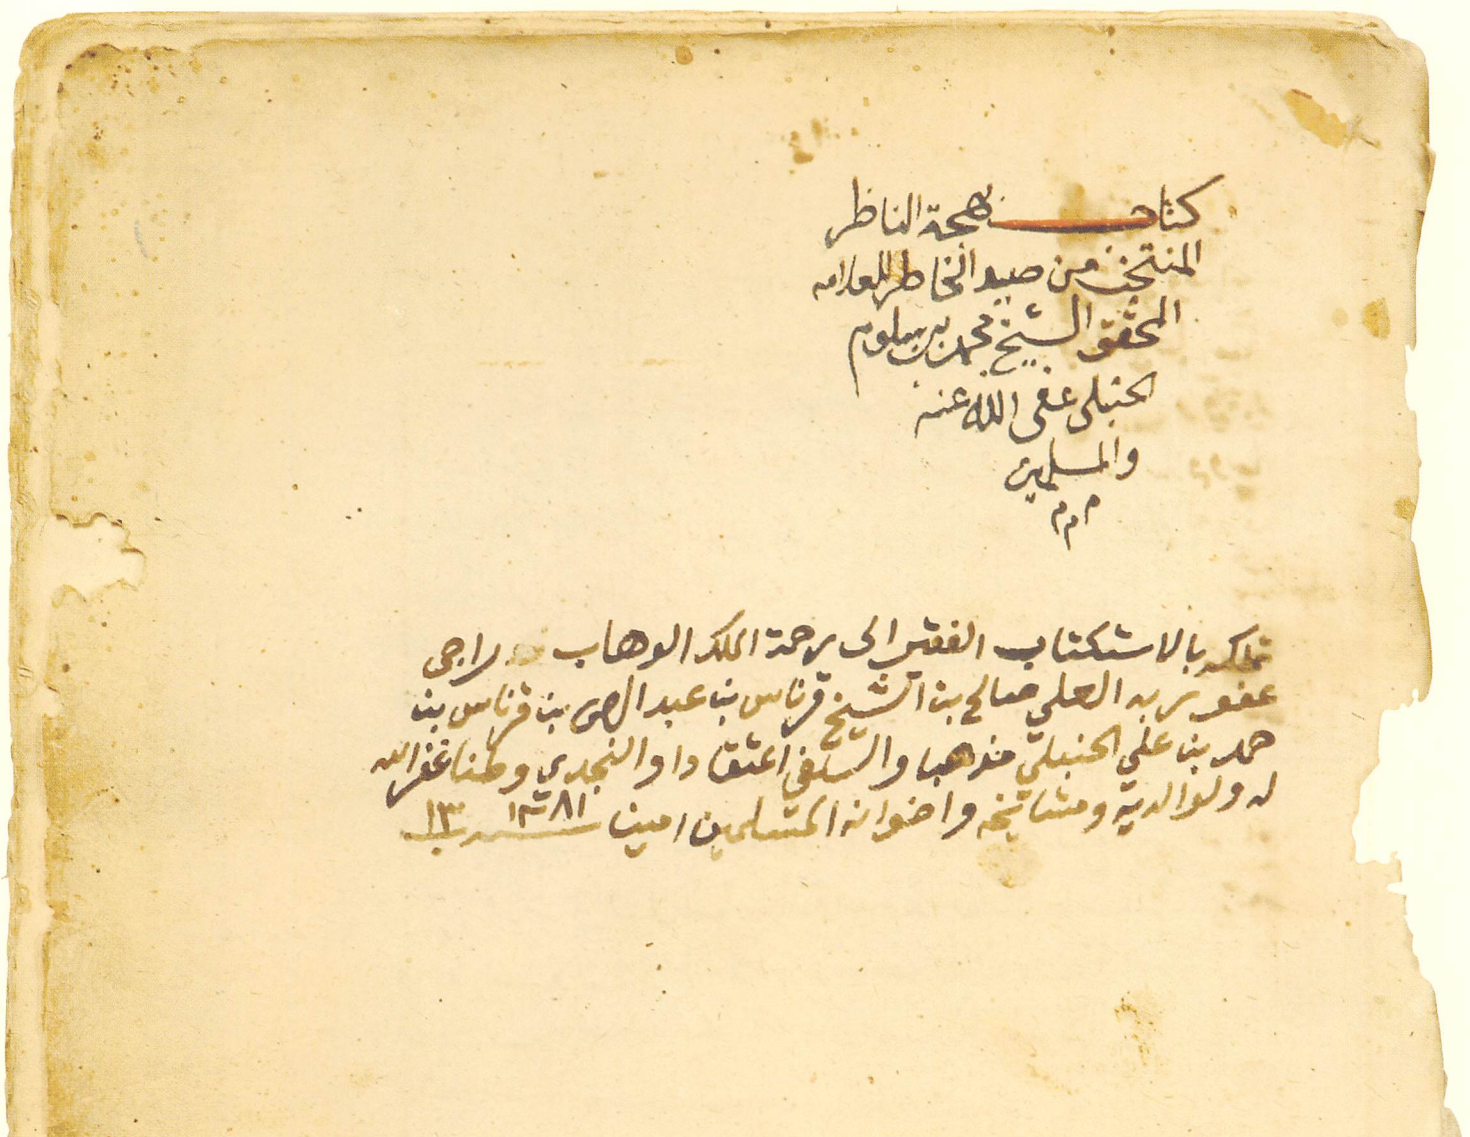 كتاب بهجة الناظر
المنتخب من صيد الخاطر للعلامه
المحقق الشيخ محمد بن سلوم
الحنبلي عفى الله عنه
والمسلمين
م م م
تملكه بالاستكتاب الفقير الى رحمة الملك الوهاب وراجي
عفو ربه العلي صالح بن الشيخ قرناس بن عبد الرحمن بن قرناس بن
حمد بن علي الحنبلي مذهبا والسلفي اعتقادا والنجدي وطنا غفر الله
له ولوالديه ومشائخه واخوانه المسلمين امين سنه